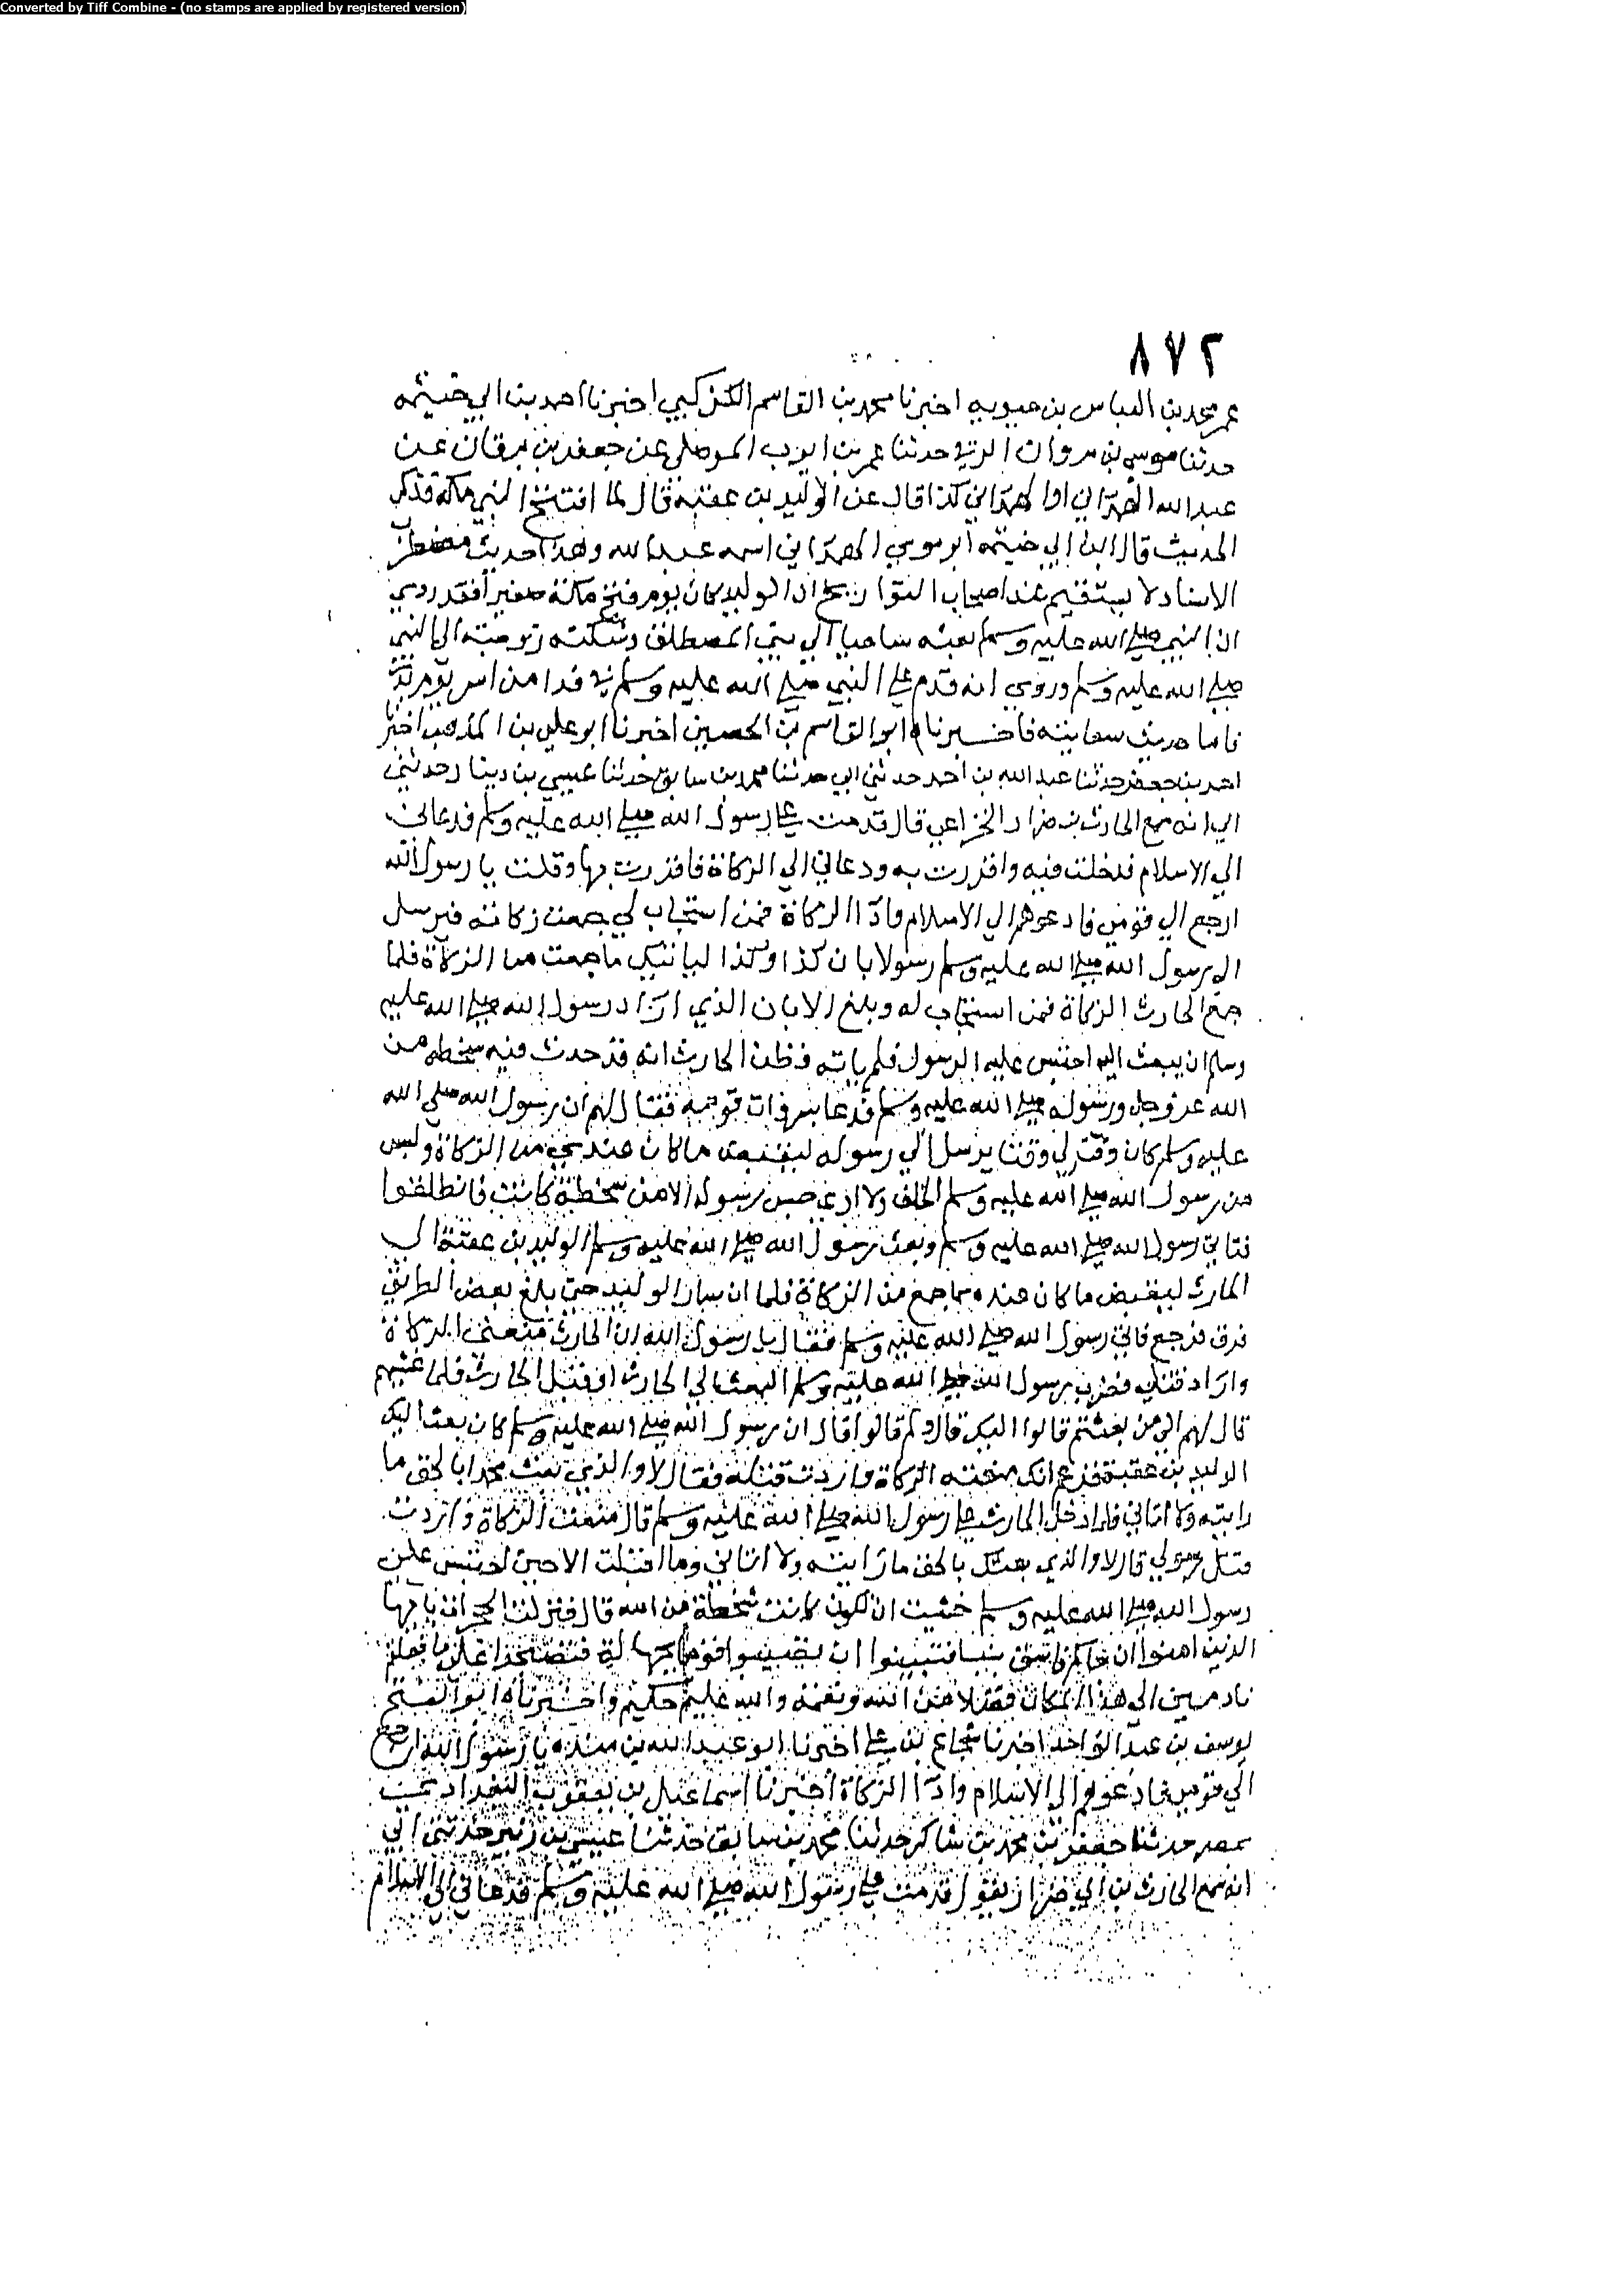 Converted by Tiff Combine - (no stamps are applied by registered version)
٨٧٢
عمر محمد بن العباس بن حيويه اخبرنا محمد بن القاسم الكوكبي اخبرنا احمد بن ابي خيثمه
حدثنا موسى بن مروان الرقي حدثنا عمر بن ايوب الموصلي عن جعفر بن برقان عن
عبد الله الهمداني او الهمداني كذا قال عن الوليد بن عقبة قال لما افتتح النبي مكة فذكر
الحديث قال ابن ابي خيثمه ابو موسي الهمداني اسمه عبد الله وهذا حديث مضطرب
الاسناد لا يستقيم عند اصحاب التواريخ ان الوليد كان يوم فتح مكة صغيرا فقد روي
ان النبي صلى الله عليه وسلم بعثه ساعيا الي بني المصطلق وشكته زوجته الي النبي
صلى الله عليه وسلم وروي انه قدم على النبي صلى الله عليه وسلم في فدا من اسر يوم بدر
فاما حديث سعايته فاخبرناه ابو القاسم بن الحصين اخبرنا ابو علي بن المذهب اخبرنا
احمد بن جعفر حدثنا عبد الله بن احمد حدثني ابي حدثنا محمد بن سابق حدثنا عيسي بن دينار حدثني
ابي انه سمع الحارث بن ضرار الخزاعي قال قدمت على رسول الله صلى الله عليه وسلم فدعاني
الي الاسلام فدخلت فيه واقررت به ودعاني الي الزكاة فاقررت بها وقلت يا رسول الله
ارجع الي قومي فادعوهم الي الاسلام وادا الزكاة فمن استجاب لي جمعت زكاته فيرسل
الي رسول الله صلى الله عليه وسلم رسولا بان كذا وكذا ليأتيك ما جمعت من الزكاة فلما
جمع الحارث الزكاة فمن استجاب له وبلغ الابان الذي اراد رسول الله صلى الله عليه
وسلم ان يبعث اليه احتبس عليه الرسول فلم ياته فظن الحارث انه قد حدث فيه سخطه من
الله عز وجل ورسوله صلى الله عليه وسلم فدعا بسروات قومه فقال لهم ان رسول الله صلى الله
عليه وسلم كان وقت لي وقتا يرسل الي رسوله ليقبض ما كان عندي من الزكاة وليس
من رسول الله صلى الله عليه وسلم الخلف ولا اري حبس رسوله الا من سخطة كانت فانطلقوا
فناتي رسول الله صلى الله عليه وسلم وبعث رسول الله صلى الله عليه وسلم الوليد بن عقبة الي
الحارث ليقبض ما كان عنده مما جمع من الزكاة فلما ان سار الوليد حتي بلغ بعض الطريق
فرق فرجع فاتي رسول الله صلى الله عليه وسلم فقال يا رسول الله ان الحارث منعني الزكاة
واراد قتلي فضرب رسول الله صلى الله عليه وسلم البعث الي الحارث فلما غشيهم
قال لهم الى من بعثتم قالوا اليك قال ولم قالوا قال ان رسول الله صلى الله عليه وسلم كان بعث اليك
الوليد بن عقبة فزعم انك منعته الزكاة واردت قتله فقال لا والذي بعث محمدا بالحق ما
رايته ولا اتاني فلما دخل الحارث على رسول الله صلى الله عليه وسلم قال منعت الزكاة واردت
قتل رسولي قال لا والذي بعثك بالحق ما رايته ولا اتاني وما اقبلت الا حين احتبس علي
رسول الله صلى الله عليه وسلم خشيت ان تكون كانت سخطة من الله قال فنزلت الحجرات يا ايها
الذين امنوا ان جاكم فاسق بنبا فتبينوا ان تصيبوا قوما بجهالة فتصبحوا على ما فعلتم
نادمين الي هذا المكان فضلا من الله ونعمة والله عليم حكيم واخبرناه ابو الفتح
يوسف بن عبد الواحد اخبرنا شجاع بن علي اخبرنا ابو عبد الله بن منده يا رسول الله ارجع
الي قومي فادعوهم الى الاسلام وادا الزكاة اخبرنا اسماعيل بن يعقوب البغدادي
بمصر حدثنا جعفر بن محمد بن شاكر حدثنا محمد بن سابق حدثنا عيسي بن حدثني ابي
انه سمع الحارث بن ابي ضرار يقول قدمت على رسول الله صلى الله عليه وسلم فدعاني الي الاسلام